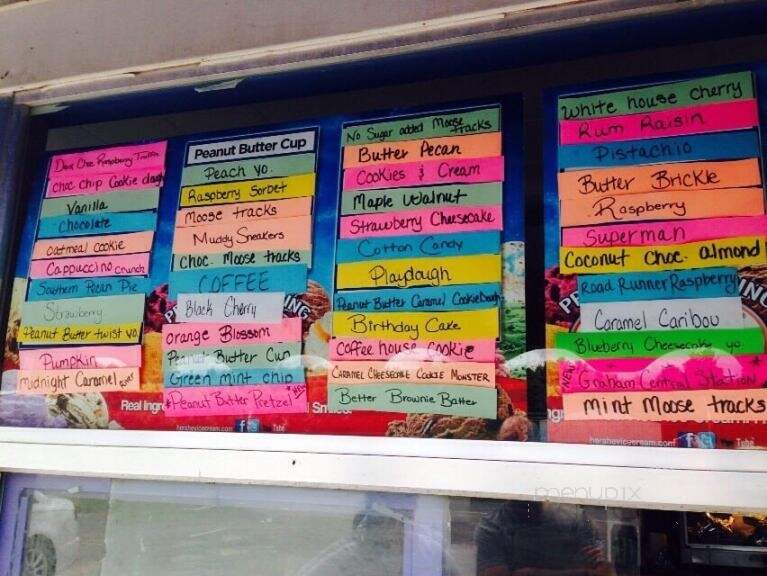 Dark Choc Raspberry Truffle
choc chip Cookie dough
Vanilla
Chocolate
oatmeal cookie
Cappuccino crunch
Southern Pecan Pie
Strawberry
Peanut Butter twist yo.
Pumpkin
midnight Caramel River
Real Ingre
Peanut Butter Cup
Peach yo.
Raspberry Sorbet
Moose tracks
Muddy Sneakers
choc. Moose tracks
COFFEE
Black Cherry
orange Blossom
Peanut Butter Cup
Green mint chip
*Peanut Butter Pretzel NEW
ING
No Sugar added Moose tracks
Butter Pecan
Cookies & Cream
Maple Walnut
Strawberry Cheesecake
Cotton Candy
Playdough
Peanut Butter Caramel Cookie Dough
Birthday Cake
Coffee house Cookie
CARAMEL CHEESECAKE COOKIE MONSTER
Better Brownie Batter
hersheyicecream.com
White house cherry
Rum Raisin
Pistachio
Butter Brickle
Raspberry
Superman
Coconut Choc. almond
Road Runner Raspberry
Caramel Caribou
Blueberry Cheesecake yo.
NEW Graham Central Station
mint Moose tracks
hersheyicecream.com
menupix